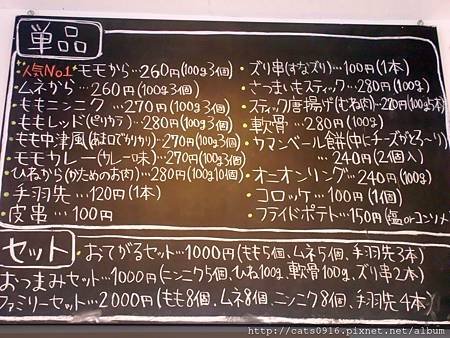 単品
人気No.1 モモから…260円(100g3個)
・ムネから …260円(100g3個)
・ももニンニク …270円(100g3個)
・ももレッド(ピリカラ)…280円(100g3個)
・もも中津風(あま口でかりかり)…270円(100g3個)
・モモカレー(カレー味)…270円(100g3個)
・ひねから(かためのお肉)…280円(100g10個)
・手羽先…120円(1本)
・皮串…100円
・ズリ串(すなズリ)…100円(1本)
・さつまいもスティック…280円(100g)
・スティック唐揚げ(むね肉)…220円(100g5本)
・軟骨…280円(100g)
・カマンベール餅(中にチーズがとろ〜り)
…240円(2個入)
・オニオンリング…240円(100g)
・コロッケ…100円(1個)
・フライドポテト…150円(塩orコンソメ)
セット
・おてがるセット…1000円(もも5個、ムネ5個、手羽先3本)
おつまみセット…1000円(ニンニク5個、ひね100g、軟骨100g、ズリ串2本)
ファミリーセット…2000円(もも8個、ムネ8個、ニンニク8個、手羽先4本)
http://cats0916.pixnet.net/album